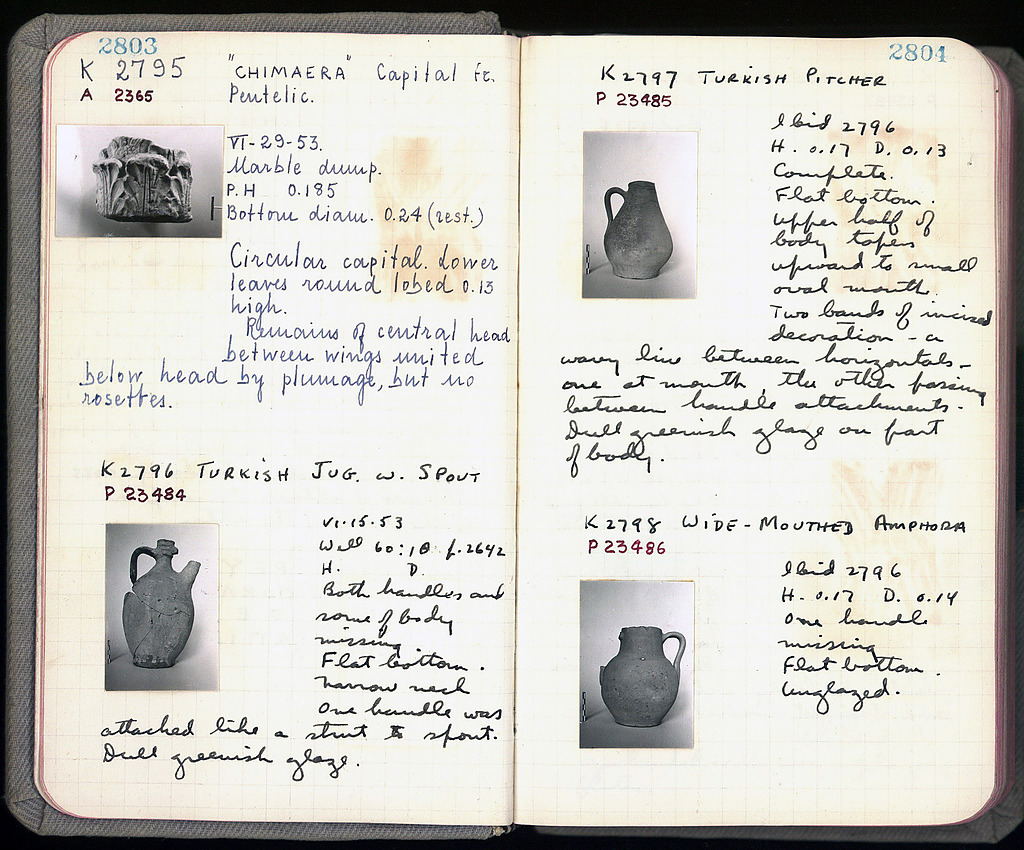 2803
K 2795 "CHIMAERA" Capital fr.
A 2365 Pentelic.
VI-29-53.
Marble dump.
P.H 0.185
Bottom diam. 0.24 (rest.)
Circular capital. Lower
leaves round lobed 0.13
high.
Remains of central head
between wings united
below head by plumage, but no
rosettes.
K2796 TURKISH JUG. W. SPOUT
P 23484
VI.15.53
Well 60:1θ p.2642
H. D.
Both handles and
some of body
missing
Flat bottom.
narrow neck
One handle was
attached like a strut to spout.
Dull greenish glaze.
2804
K2797 TURKISH PITCHER
P 23485
Ibid 2796
H. 0.17 D. 0.13
Complete.
Flat bottom.
Upper half of
body tapers
upward to small
oval mouth.
Two bands of incised
decoration - a
wavy line between horizontals -
one at mouth, the other passing
between handle attachments.
Dull greenish glaze on part
of body.
K2798 WIDE-MOUTHED AMPHORA
P23486
Ibid 2796
H. 0.17 D. 0.14
One handle
missing
Flat bottom.
Unglazed.